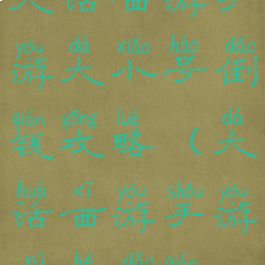 yóu dà xiǎo hào dǎo
游大小号倒
qián gōng lüè dà
钱攻略（大
huà xī yóu shǒu yóu
话西游手游